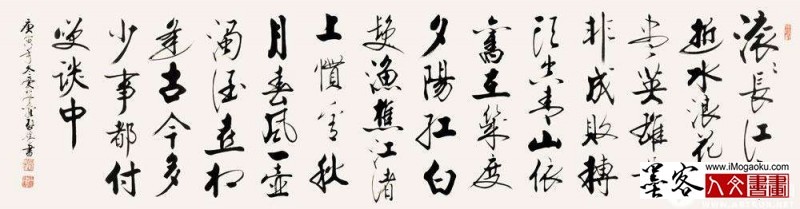 滚滚長江
逝水浪花
尽英雄
非成敗轉
頭空青山依
舊在幾度
夕陽紅白
髮漁樵江渚
上慣看秋
月春風一壺
濁酒喜相
逢古今多
少事都付
笑談中
庚寅年
墨客
www.iMogaoku.com
人文書畫